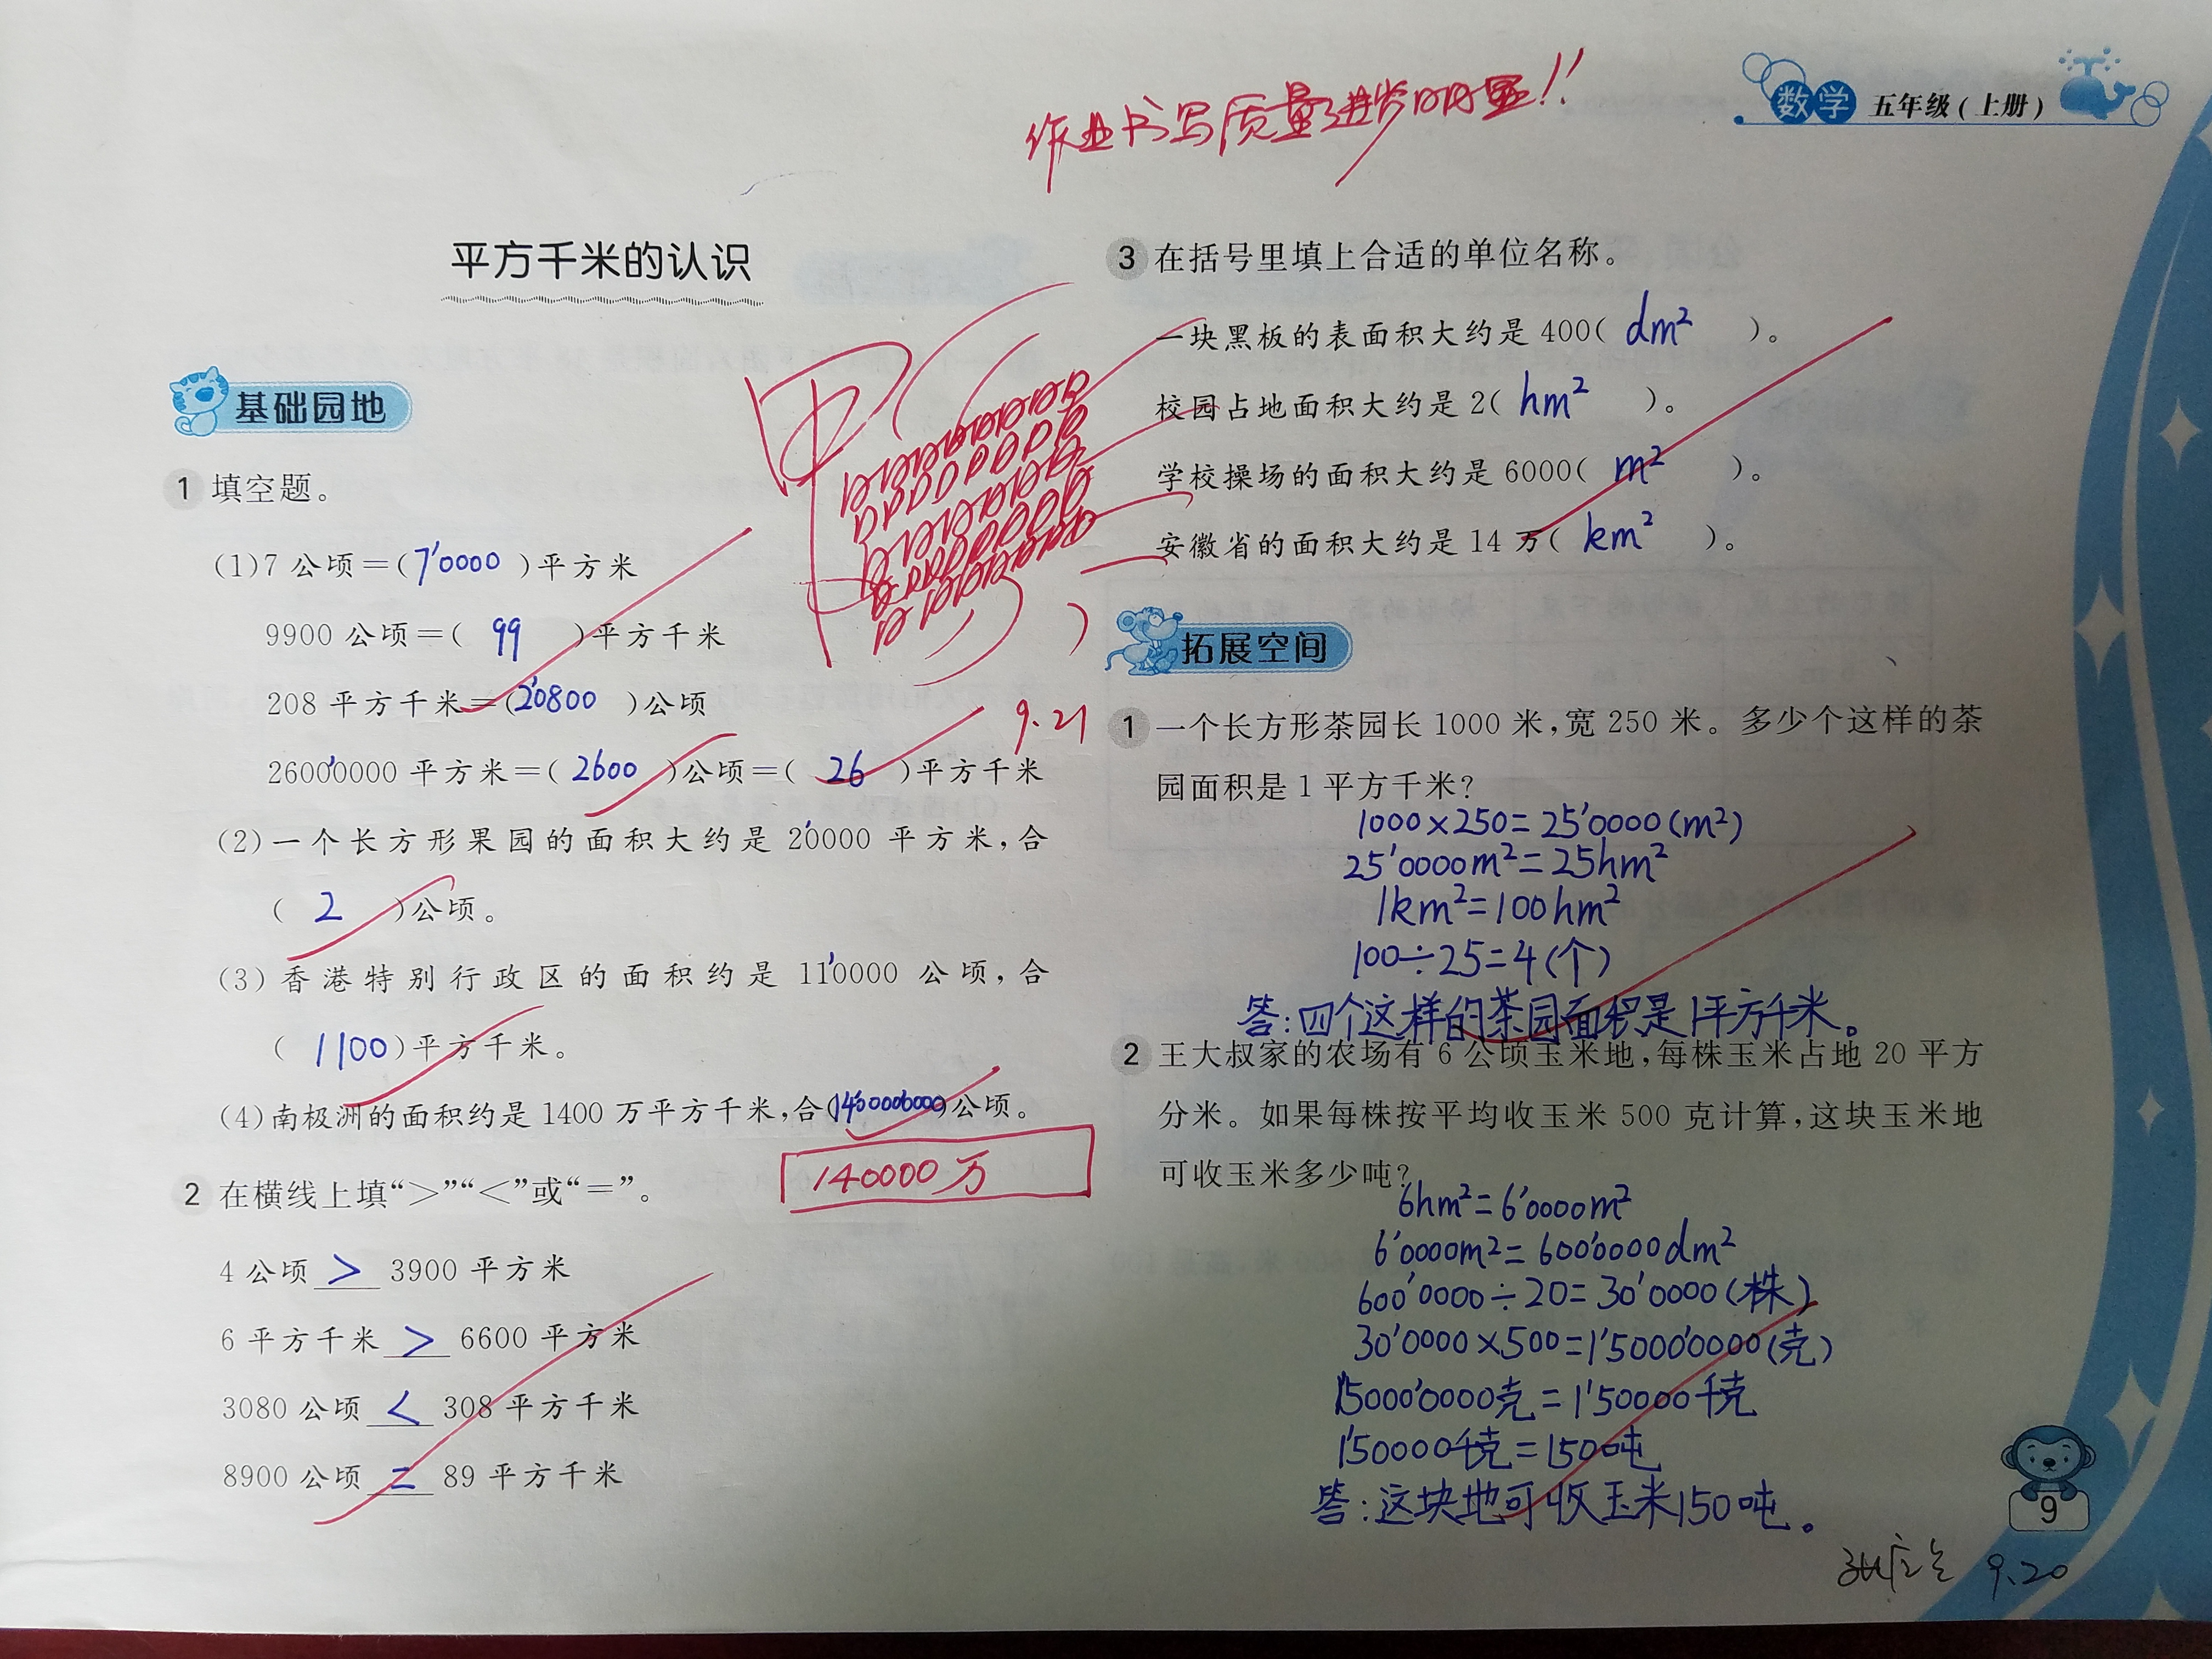 作业书写质量
数学 五年级(上册)
平方千米的认识
基础园地
1 填空题。
(1)7公顷=(7'0000)平方米
9900公顷=( 99 )平方千米
208平方千米=(20800)公顷
26000000平方米=( 2600 )公顷=( 26 )平方千米
(2)一个长方形果园的面积大约是20000平方米,合
( 2 )公顷。
(3)香港特别行政区的面积约是110000公顷,合
( 1100 )平方千米。
(4)南极洲的面积约是1400万平方千米,合(
)公顷。
140000万
2 在横线上填“>”“<”或“=”。
4公顷 > 3900平方米
6平方千米 > 6600平方米
3080公顷 < 308平方千米
8900公顷 = 89平方千米
9.21
3 在括号里填上合适的单位名称。
一块黑板的表面积大约是400( dm² )。
校园占地面积大约是2( hm² )。
学校操场的面积大约是6000( m² )。
安徽省的面积大约是14万( km² )。
拓展空间
1 一个长方形茶园长1000米,宽250米。多少个这样的茶
园面积是1平方千米?
1000×250=25'0000(m²)
25'0000m²=25hm²
1km²=100hm²
100÷25=4(个)
答:四个这样的茶园面积是1平方千米。
2 王大叔家的农场有6公顷玉米地,每株玉米占地20平方
分米。如果每株按平均收玉米500克计算,这块玉米地
可收玉米多少吨?
6hm²=6'0000m²
6'0000m²=600'0000dm²
600'0000÷20=30'0000(株)
30'0000×500=1'5000'0000(克)
1'5000'0000克=1'50000千克
150000千克=150吨
答:这块地可收玉米150吨。
9.20
9